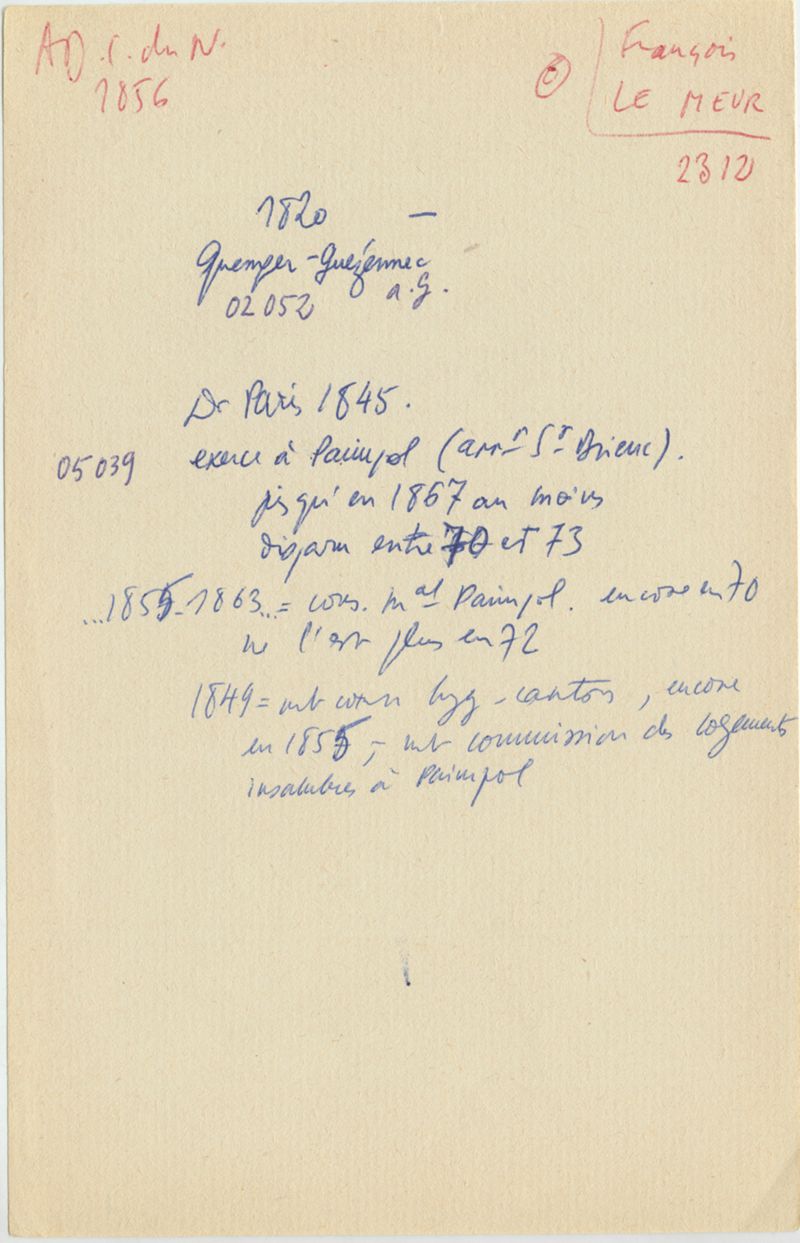 AD. C. du N.
1856
© François
LE MEUR
2312
1820 —
Quemper-Guézennec
02052 a.G.
Dr Paris 1845.
05039 exerce à Paimpol (arrt St Brieuc).
jusqu'en 1867 au moins
disparu entre 70 et 73
...1855-1863...= cons. mal Paimpol. encore en 70
ne l'est plus en 72
1849 = mb conseil hyg-canton, encore
en 1855, - mb commission des logements
insalubres à Paimpol